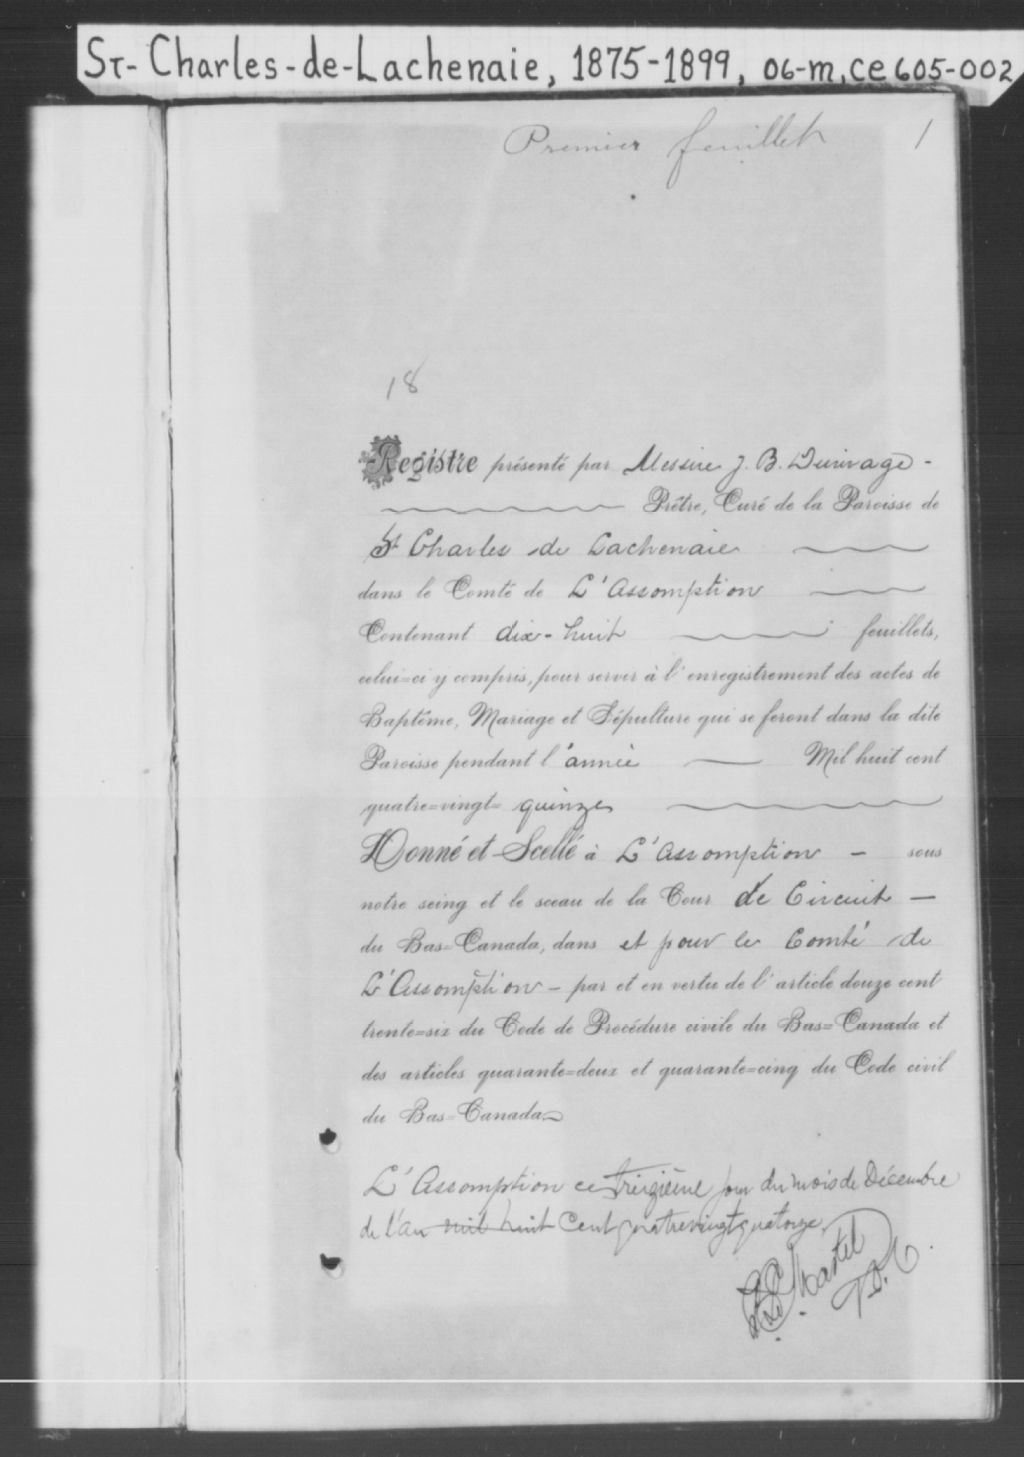 ST-Charles-de-Lachenaie, 1875-1899, 06-m, ce 605-002
Premier feuillet 1
18
Registre présenté par Messire J. B. Durivage -
Prêtre, Curé de la Paroisse de
St Charles de Lachenaie
dans le Comté de L'Assomption
Contenant dix-huit feuillets,
celui=ci y compris, pour servir à l'enregistrement des actes de
Baptême, Mariage et Sépulture qui se feront dans la dite
Paroisse pendant l'année Mil huit cent
quatre=vingt= quinze
Donné et Scellé à L'Assomption - sous
notre seing et le sceau de la Cour de Circuit -
du Bas=Canada, dans et pour le Comté de
L'Assomption - par et en vertu de l'article douze cent
trente=six du Code de Procédure civile du Bas=Canada et
des articles quarante=deux et quarante=cinq du Code civil
du Bas=Canada
L'Assomption ce treizième jour du mois de Décembre
de l'an mil huit Cent quatrevingt quatorze
Martel